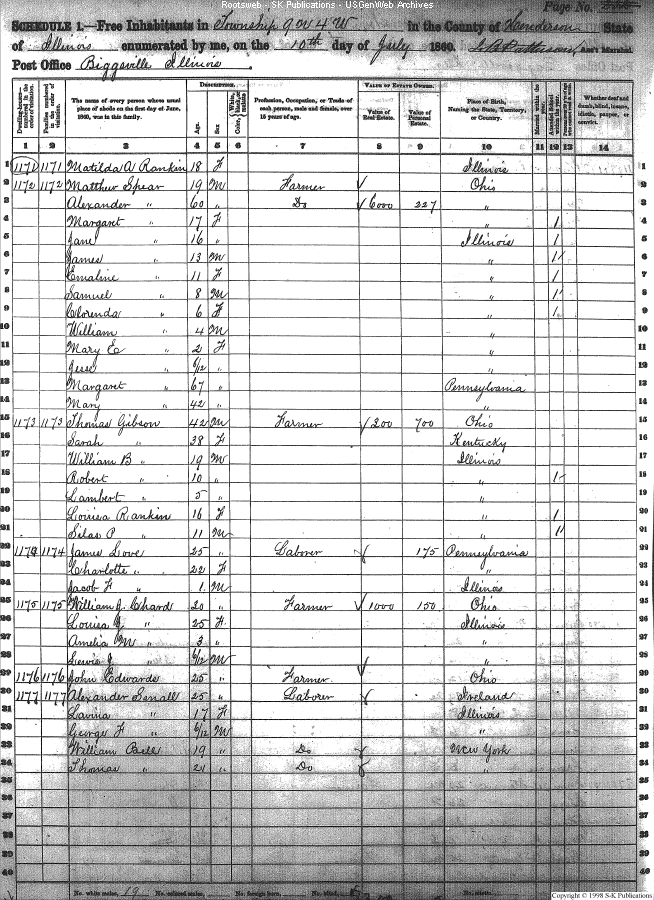 Rootsweb - SK Publications - USGenWeb Archives
Page No.
SCHEDULE 1.—Free Inhabitants in Township 9 N 4 W in the County of Henderson State
of Illinois enumerated by me, on the 10th day of July 1860. Ass't Marshal.
Post Office Biggsville Illinois
Dwelling-houses—numbered in the order of visitation. Families numbered in the order of visitation. The name of every person whose usual place of abode on the first day of June, 1860, was in this family. DESCRIPTION. Age. Sex. Color, Profession, Occupation, or Trade of each person, male and female, over 15 years of age. VALUE OF ESTATE OWNED. Value of Real Estate. Value of Personal Estate. Place of Birth, Naming the State, Territory, or Country. Married within the year. Attended School within the year. Whether deaf and dumb, blind, insane, idiotic, pauper, or convict.
1 2 3 4 5 6 7 8 9 10 11 12 13 14
1 1171 1171 Matilda A Rankin 18 F Illinois 1
2 1172 1172 Matthew Spear 19 M Farmer Ohio 2
3 Alexander " 60 " Do 6000 227 " 3
4 Margaret " 17 F " 1 4
5 Jane " 16 " Illinois 1 5
6 James " 13 M " 1 6
7 Emaline " 11 F " 1 7
8 Samuel " 8 M " 1 8
9 Clorenda " 6 F " 1 9
10 William " 4 M " 10
11 Mary E " 2 F " 11
12 Jesse " 6/12 " " 12
13 Margaret " 67 " Pennsylvania 13
14 Mary " 42 " " 14
15 1173 1173 Thomas Gibson 42 M Farmer 200 700 Ohio 15
16 Sarah " 38 F Kentucky 16
17 William B " 19 M Illinois 17
18 Robert " 10 " " 1 18
19 Lambert " 5 " " 19
20 Louisa Rankin 16 F " 1 20
21 Silas P " 11 M " 1 21
22 1174 1174 James Love 25 " Laborer 175 Pennsylvania 22
23 Charlotte " 22 F " 23
24 Jacob F " 1 M Illinois 24
25 1175 1175 William J Chard 20 " Farmer 1000 150 Ohio 25
26 Louisa " 25 F Illinois 26
27 Amelia M " 3 " " 27
28 Lewis " 6/12 M " 28
29 1176 1176 John Edwards 25 " Farmer Ohio 29
30 1177 1177 Alexander Senall 25 " Laborer Ireland 30
31 Lavina " 17 F Illinois 31
32 George F " 6/12 M " 32
33 William Bell 19 " Do New York 33
34 Thomas " 21 " Do " 34
35 35
36 36
37 37
38 38
39 39
40 40
No. white males, 19 No. colored males, No. foreign born, No. blind,
Copyright © 1998 S-K Publications